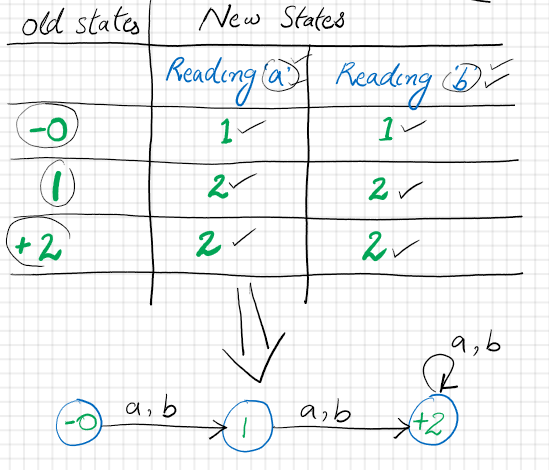 old states New States
Reading 'a' Reading 'b'
-0 1 1
1 2 2
+2 2 2
a, b
a, b a, b
-0 1 +2